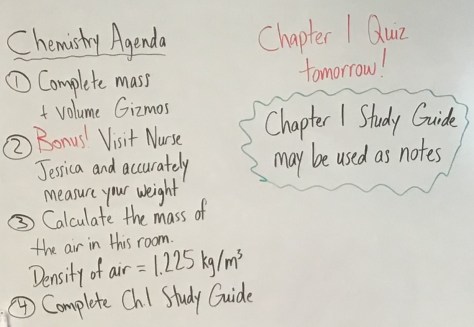 Chemistry Agenda
① Complete mass
+ volume Gizmos
② Bonus! Visit Nurse
Jessica and accurately
measure your weight
③ Calculate the mass of
the air in this room.
Density of air = 1.225 kg/m³
④ Complete Ch.1 Study Guide
Chapter 1 Quiz
tomorrow!
Chapter 1 Study Guide
may be used as notes